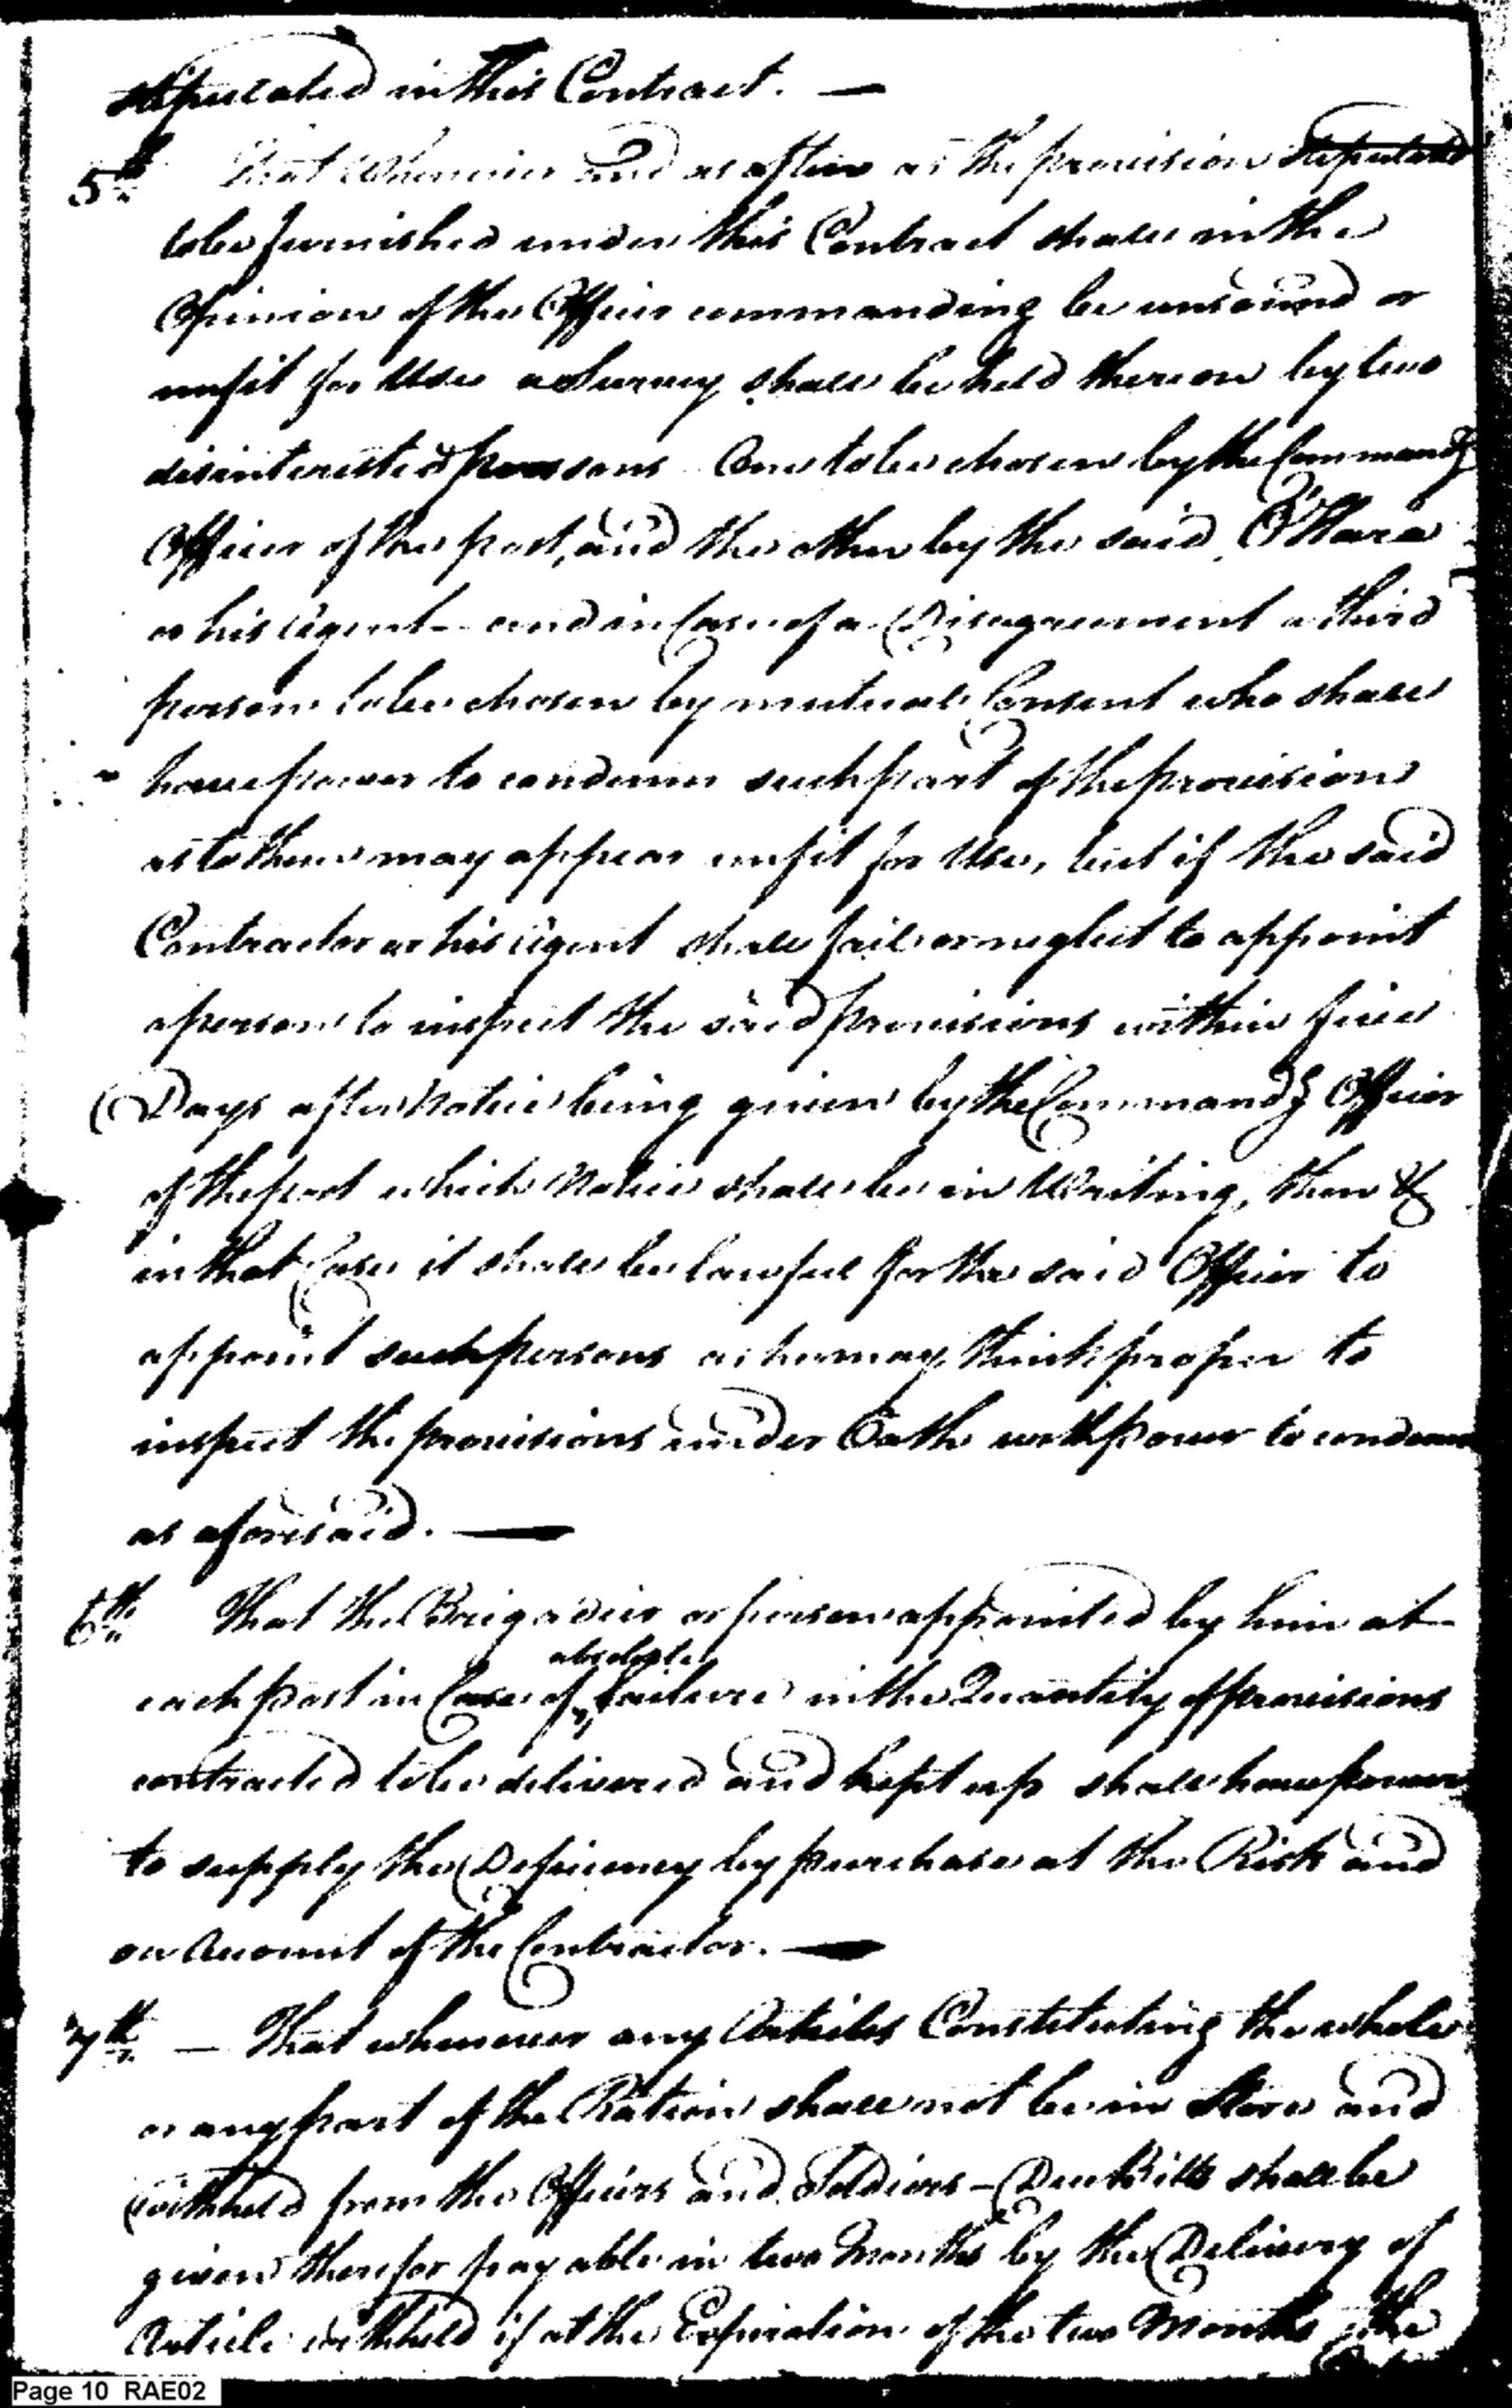 stipulated in this Contract. —
5th That Whenever and as often as the provision stipulated
to be furnished under this Contract shall in the
Opinion of the Officer commanding be unsound or
unfit for Use a Survey shall be held thereon by two
disinterested persons One to be chosen by the Commandg
Officer of the post, and the other by the said O'Hara
or his Agent – and in Case of a Disagreement a third
person to be chosen by mutual Consent who shall
have power to condemn such part of the provision
as to them may appear unfit for Use, but if the said
Contractor or his Agent shall fail or neglect to appoint
a person to inspect the said provisions within five
Days after Notice being given by the Commandg Officer
of the post which Notice shall be in Writing, then &
in that Case it shall be lawful for the said Officer to
appoint such persons as he may think proper to
inspect the provisions under Oath with power to condemn
as aforesaid. —
6th That the Brigadier or person appointed by him at
each post in Case of absolute failure in the Quantity of provisions
contracted to be delivered and kept up shall have power
to supply the Deficiency by purchase at the Risk and
on Account of the Contractor. —
7th — That whenever any Articles Constituting the whole
or any part of the Ration shall not be in Store and
withheld from the Officers and Soldiers – Due Bills shall be
given therefor payable in two Months by the Delivery of
Article withheld if at the Expiration of the two Months the
Page 10 RAE02